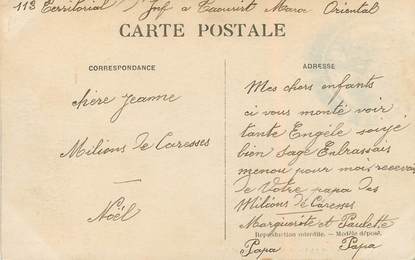 113 Territorial d'Inf à Taourirt Maroc Oriental
CARTE POSTALE
CORRESPONDANCE
chère Jeanne
Milions de Caresses
Noël
ADRESSE
Mes chers enfants
ci vous monté voir
tante Engèle soiyé
bien sage Enbrassais
menou pour moi, recevoir
de Votre papa des
Milions de Caresses
Marguerite et Paulette
Reproduction interdite. - Modèle déposé.
Papa Papa